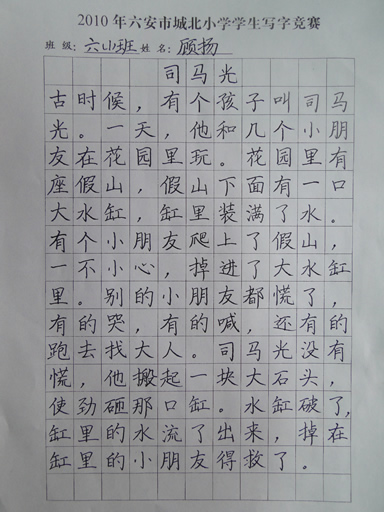 2010年六安市城北小学学生写字竞赛
班级:六(4)班 姓名:顾扬
司马光
古时候，有个孩子叫司马
光。一天，他和几个小朋
友在花园里玩。花园里有
座假山，假山下面有一口
大水缸，缸里装满了水。
有个小朋友爬上了假山，
一不小心，掉进了大水缸
里。别的小朋友都慌了，
有的哭，有的喊，还有的
跑去找大人。司马光没有
慌，他搬起一块大石头，
使劲砸那口缸。水缸破了，
缸里的水流了出来，掉在
缸里的小朋友得救了。